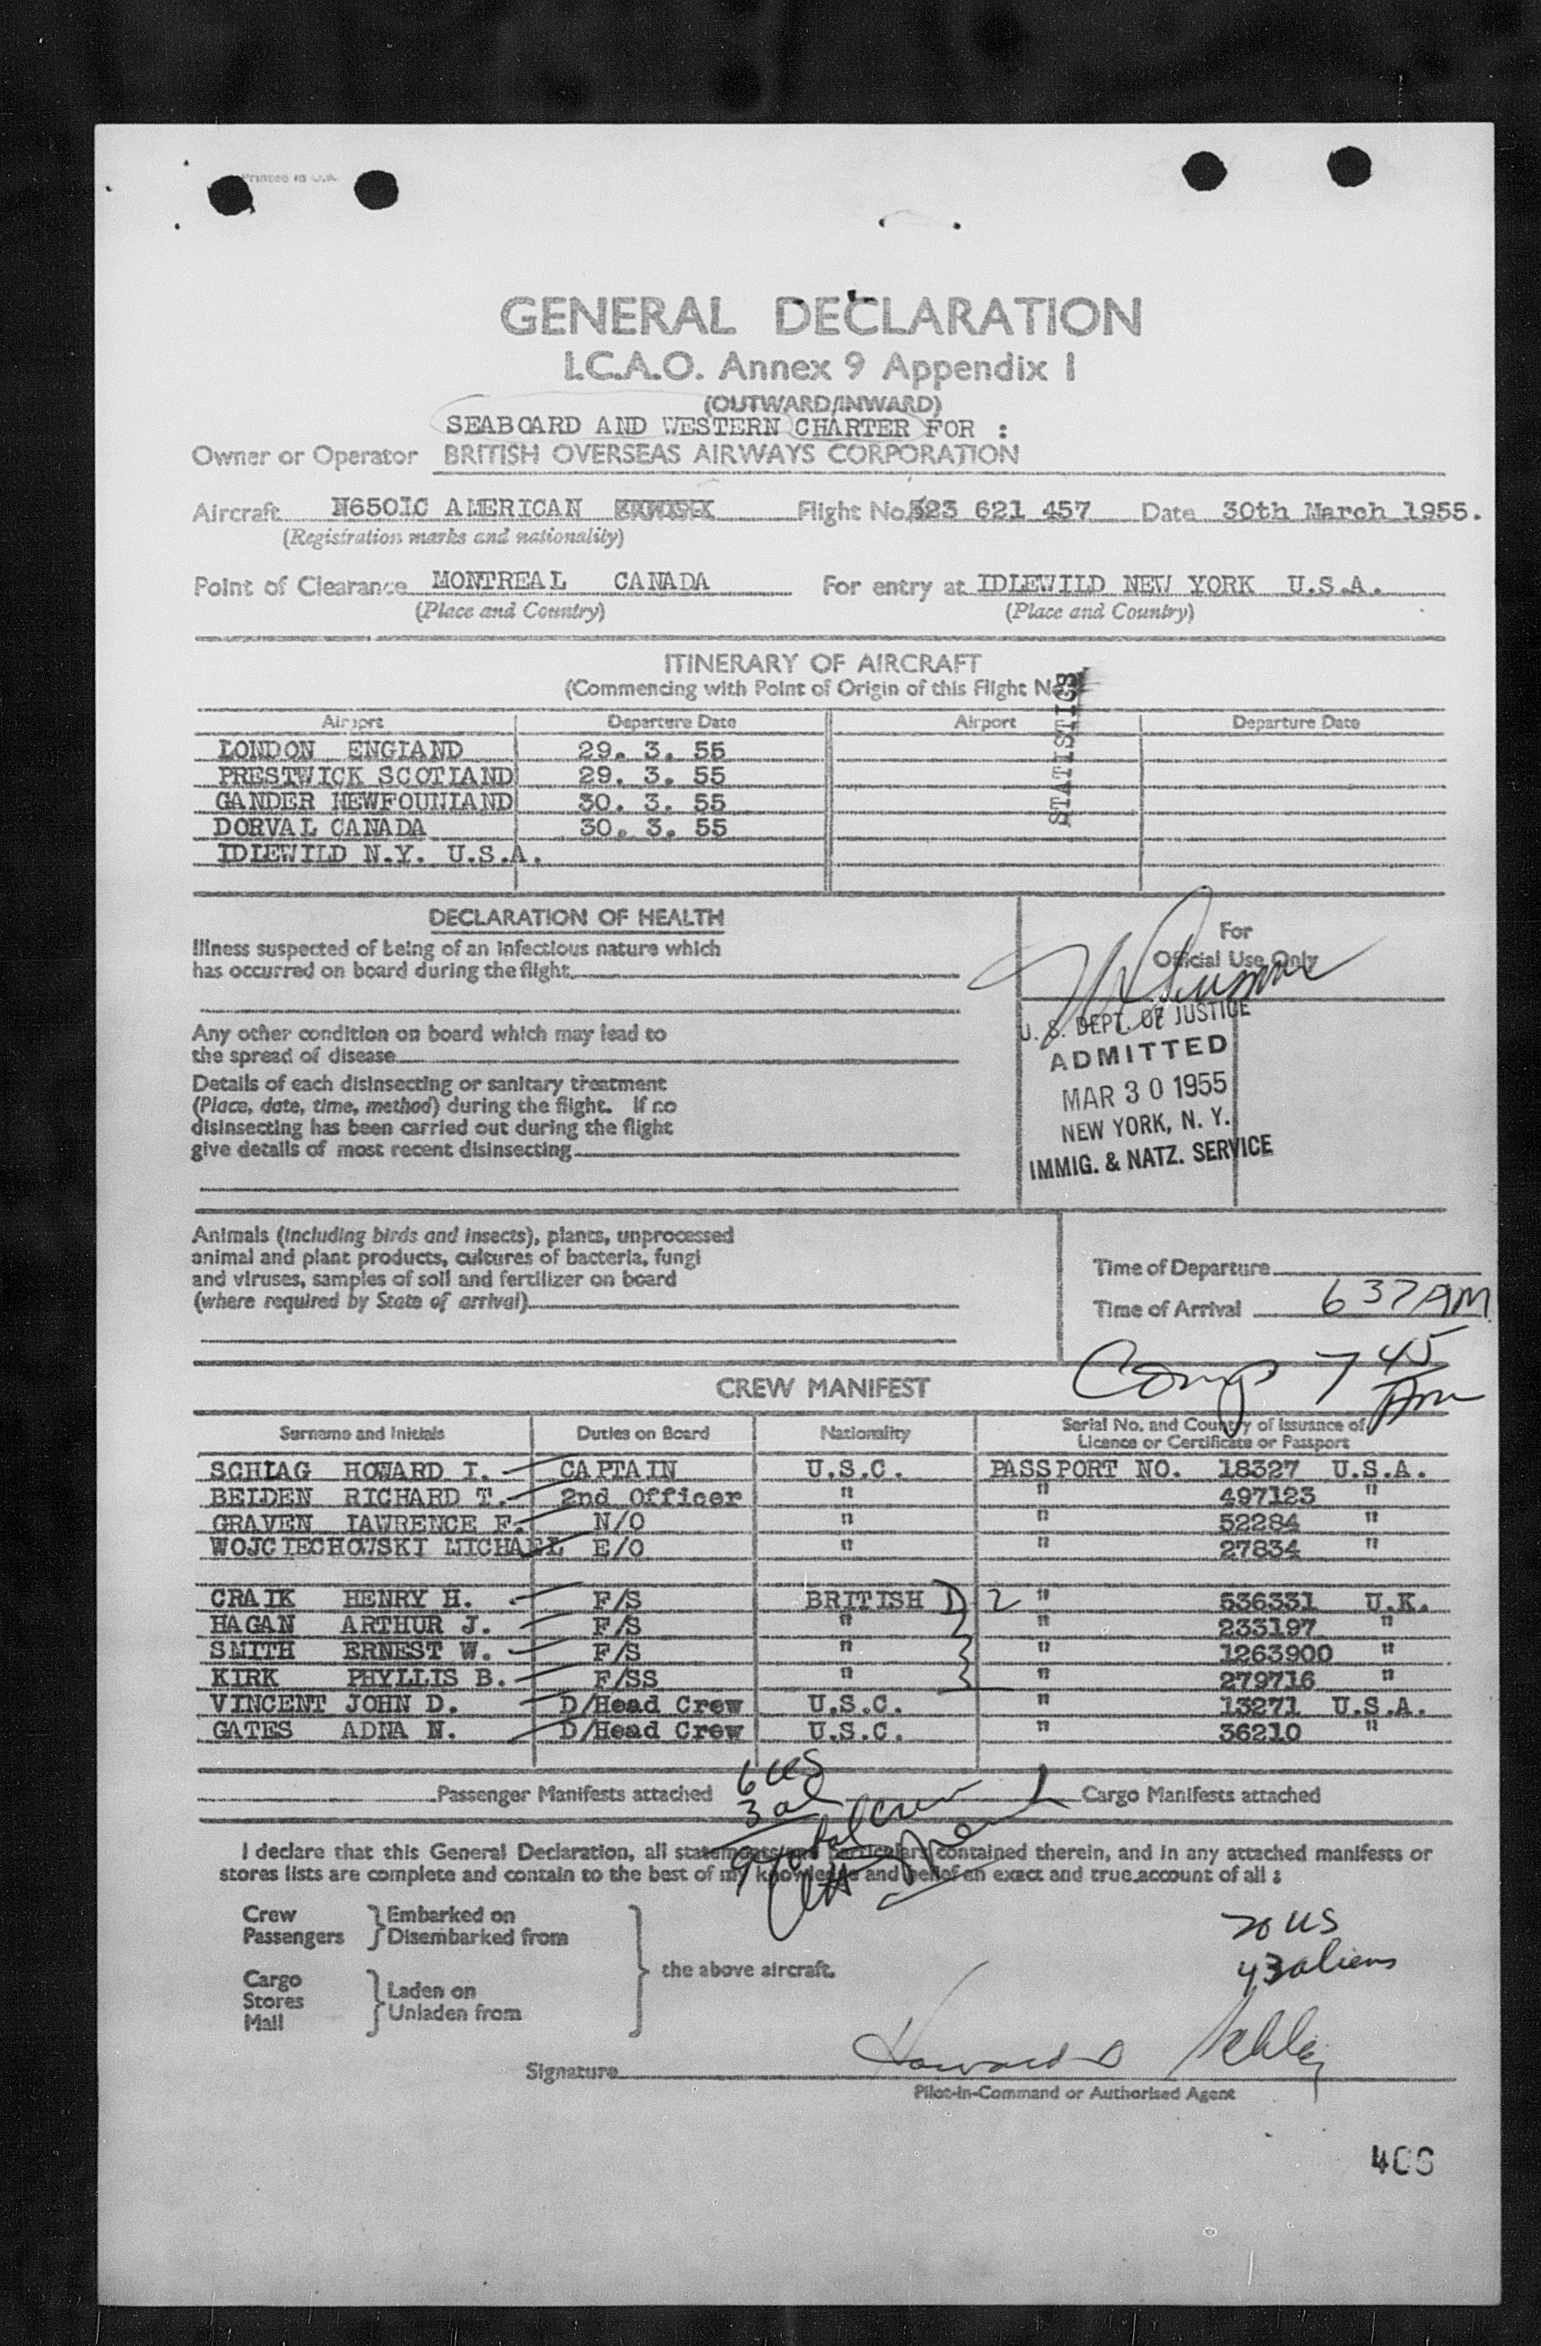 Printed in U.K.
GENERAL DECLARATION
I.C.A.O. Annex 9 Appendix 1
(OUTWARD/INWARD)
SEABOARD AND WESTERN CHARTER FOR :
Owner or Operator BRITISH OVERSEAS AIRWAYS CORPORATION
Aircraft N6501C AMERICAN Flight No. 523 621 457 Date 30th March 1955.
(Registration marks and nationality)
Point of Clearance MONTREAL CANADA For entry at IDLEWILD NEW YORK U.S.A.
(Place and Country) (Place and Country)
ITINERARY OF AIRCRAFT
(Commencing with Point of Origin of this Flight No.)
STATISTICS
Airport Departure Date Airport Departure Date
LONDON ENGLAND 29. 3. 55
PRESTWICK SCOTLAND 29. 3. 55
GANDER NEWFOUNLAND 30. 3. 55
DORVAL CANADA 30. 3. 55
IDLEWILD N.Y. U.S.A.
DECLARATION OF HEALTH
Illness suspected of being of an infectious nature which
has occurred on board during the flight
Any other condition on board which may lead to
the spread of disease
Details of each disinsecting or sanitary treatment
(Place, date, time, method) during the flight. If no
disinsecting has been carried out during the flight
give details of most recent disinsecting
For
Official Use Only
U. S. DEPT. OF JUSTICE
ADMITTED
MAR 30 1955
NEW YORK, N. Y.
IMMIG. & NATZ. SERVICE
Animals (including birds and insects), plants, unprocessed
animal and plant products, cultures of bacteria, fungi
and viruses, samples of soil and fertilizer on board
(where required by State of arrival)
Time of Departure
Time of Arrival 6 37 AM
Comp 7 45 Am
CREW MANIFEST
Surname and Initials Duties on Board Nationality Serial No. and Country of Issuance of
Licence or Certificate or Passport
SCHLAG HOWARD I. CAPTAIN U.S.C. PASSPORT NO. 18327 U.S.A.
BELDEN RICHARD T. 2nd Officer " " 497123 "
GRAVEN LAWRENCE F. N/O " " 52284 "
WOJCIECHOWSKI MICHAEL E/O " " 27834 "
CRAIK HENRY H. F/S BRITISH D 2 " 536331 U.K.
HAGAN ARTHUR J. F/S " " 233197 "
SMITH ERNEST W. F/S " " 1263900 "
KIRK PHYLLIS B. F/SS " " 279716 "
VINCENT JOHN D. D/Head Crew U.S.C. " 13271 U.S.A.
GATES ADNA N. D/Head Crew U.S.C. " 36210 "
6 US
Passenger Manifests attached Cargo Manifests attached
3 al
9 total crew
I declare that this General Declaration, all statements and particulars contained therein, and in any attached manifests or
stores lists are complete and contain to the best of my knowledge and belief an exact and true account of all :
Crew
Passengers
Embarked on
Disembarked from
Cargo
Stores
Mail
Laden on
Unladen from
the above aircraft.
20 US
43 aliens
Signature Howard
Pilot-in-Command or Authorised Agent